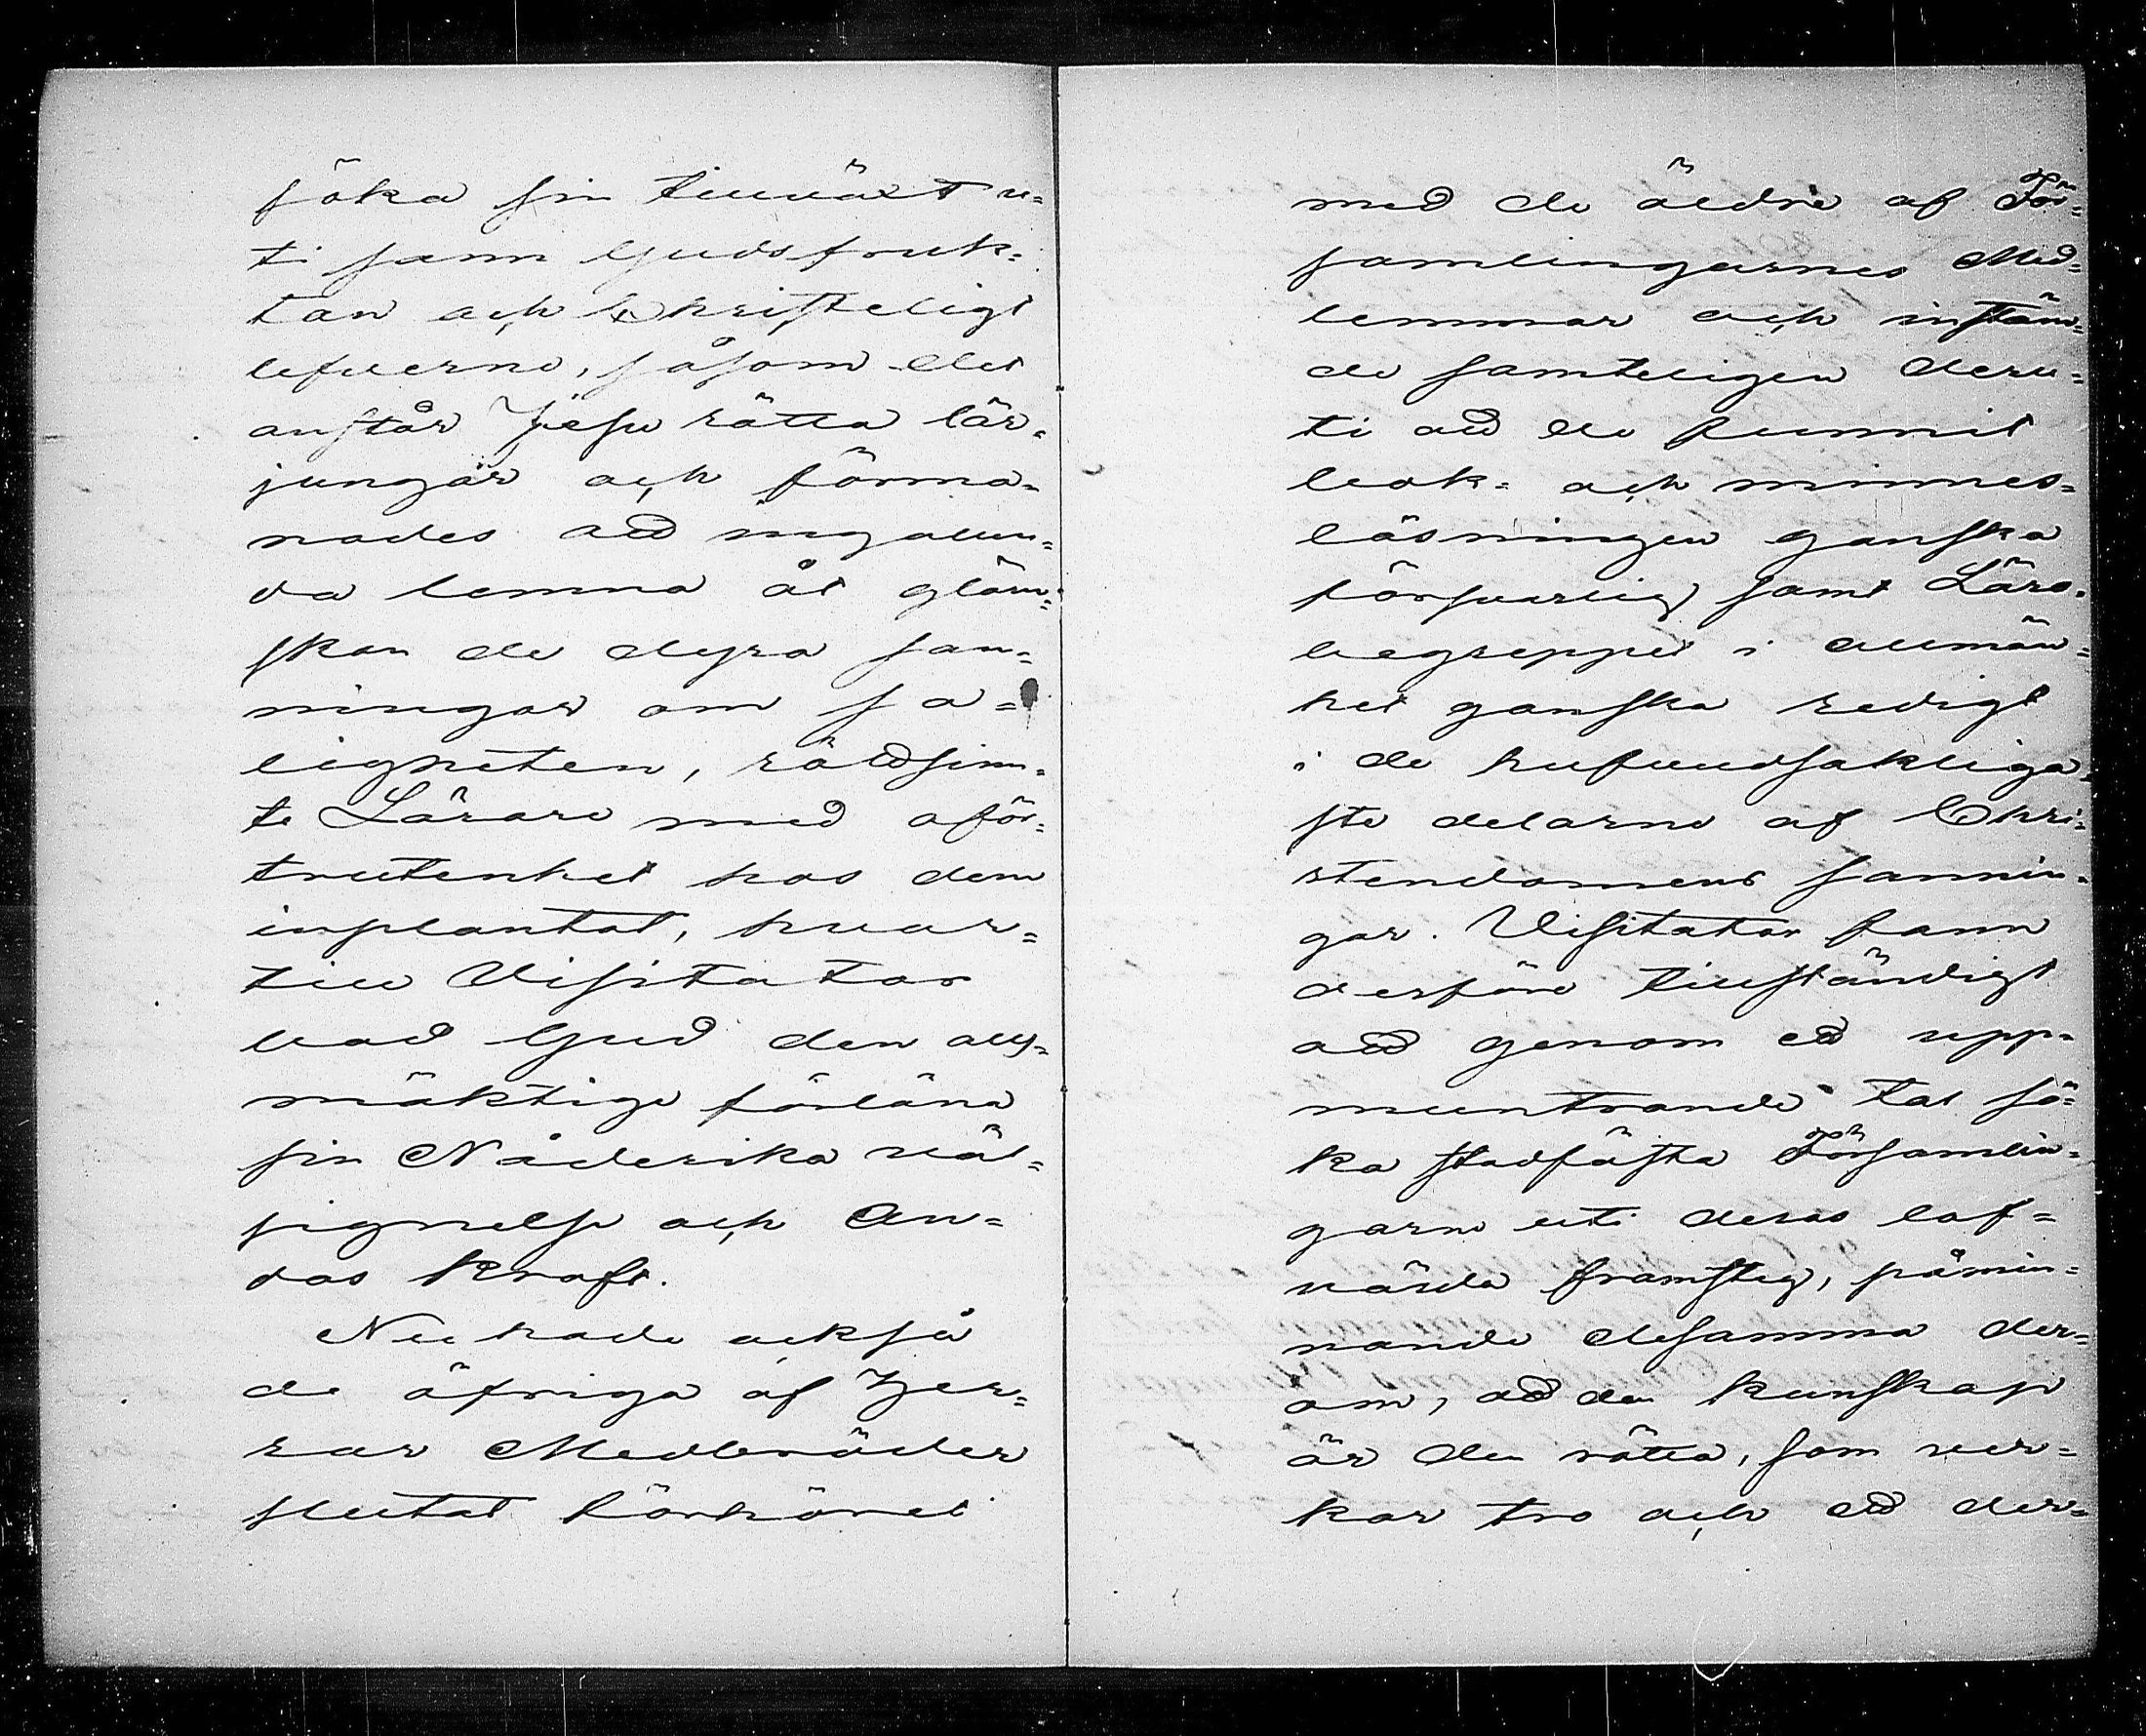 söka sin tillväxt u=
ti sann Gudsfruk=
tan och Christeligt
lefverne, såsom det
anstår Jesu rätta lär=
jungar och förma=
nades att ingalun=
da lemna åt glöm=
skan de dyra san=
ningar om sa=
ligheten, rättsinn=
te Lärare med oför=
trutenhet hos dem
inplantat, hvar=
till Visitator
bad Gud den all=
mäktige förläna
sin Nåderika väl=
signelse och An=
das kraft.
Nu hade också
de öfriga af Her=
rar Medbröder
slutat förhöret
med de äldre af För=
samlingarnes Med=
lemmar och instäm=
de samteligen deru=
ti att de funnit
bok= och minnes=
läsningen ganska
försvarlig samt Läro=
begreppet i allmän=
het ganska redigt
i de hufvudsakliga=
ste delarne af Chri=
stendomens sannin=
gar. Visitator fann
derföre tillständigt
att genom ett upp=
muntrande tal sö=
ka stadfästa Församlin=
garne uti deras lof=
värda framsteg, påmin=
nande desamma der=
om, att den kunskap
är den rätta, som ver=
kar tro och ett der=